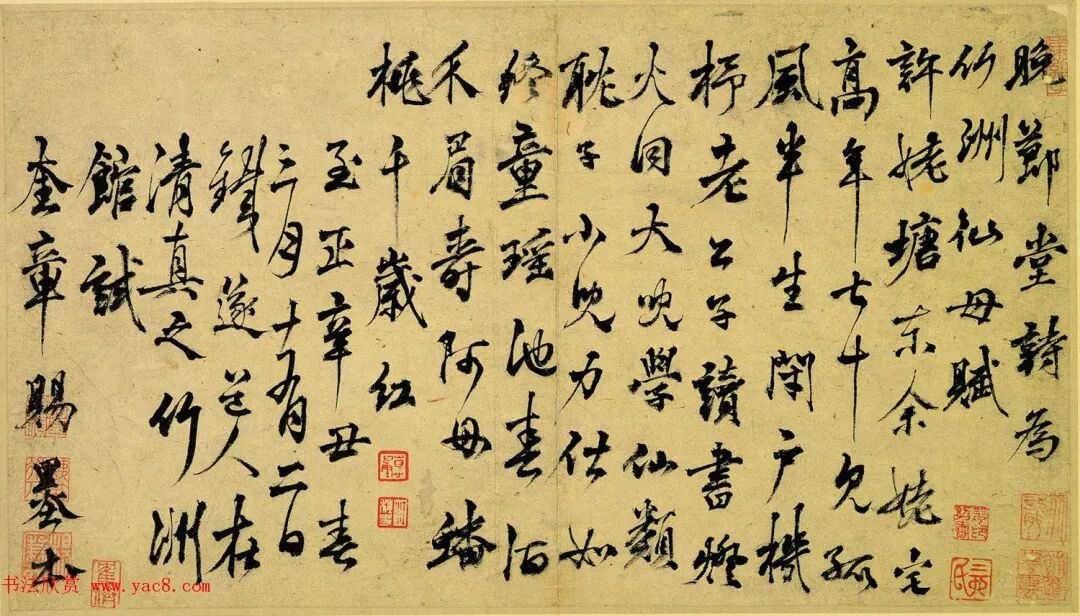 晚節堂詩為
竹洲仙母賦
許姥塘東余姥宅
高年七十見孤
風半生閉戶機
杼老公子讀書燈
火同大兒學仙類
耽子小兒力仕如
終童瑤池春酒
眉壽阿母蟠
桃千歲紅
至正辛丑春
三月十有二日
鐵篴道人在
清真之竹洲
館試
奎章賜墨書
书法欣赏 www.yac8.com